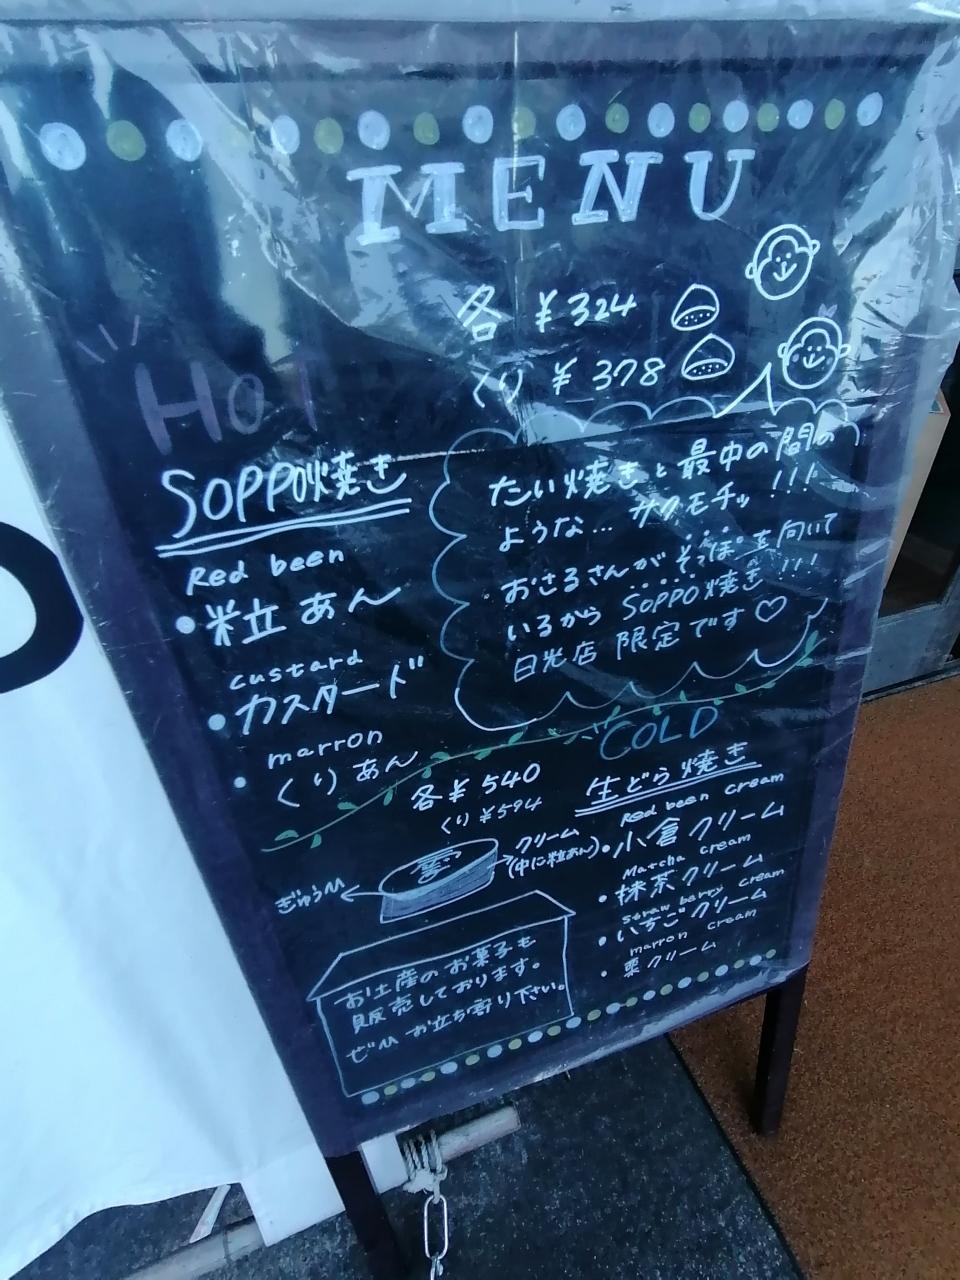 MENU
各 ¥324
くり ¥378
HOT
SOPPO焼き
Red been
・粒あん
custard
・カスタード
marron
・くりあん
たい焼きと最中の間の
ような… サクモチッ!!!
おさるさんがそっぽを向いて
いるから SOPPO焼き!!!
日光店限定です♡
COLD
各¥540
くり¥594
生どら焼き
Red been cream
・小倉クリーム
Matcha cream
・抹茶クリーム
straw berry cream
・いちごクリーム
marron cream
・栗クリーム
クリーム
(中に粒あん)
ぎゅうひ
お土産のお菓子も
販売しております。
ぜひお立ち寄り下さい。